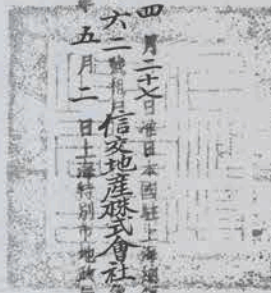 四月二十七日准日本國駐上海總
六二號租信交地産株式會社
年五月二日上海特別市地政